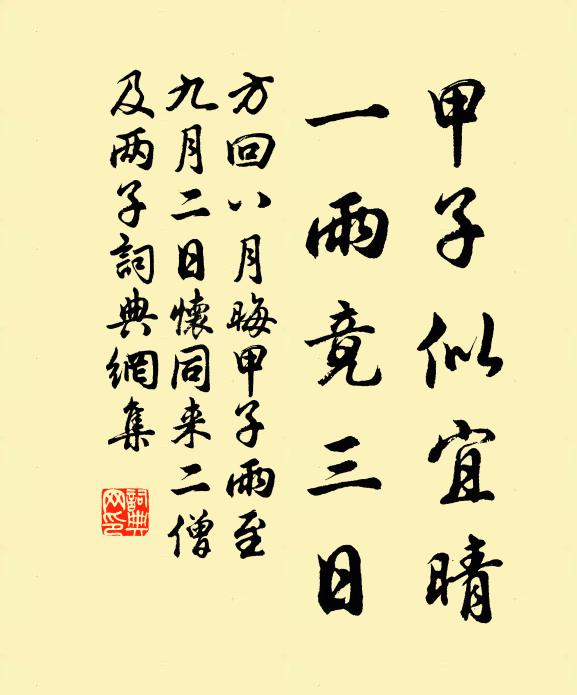 甲子似宜晴
一雨竟三日
方回八月晦甲子雨至
九月二日懷同来二僧
及两子詞典網集
詞典网印